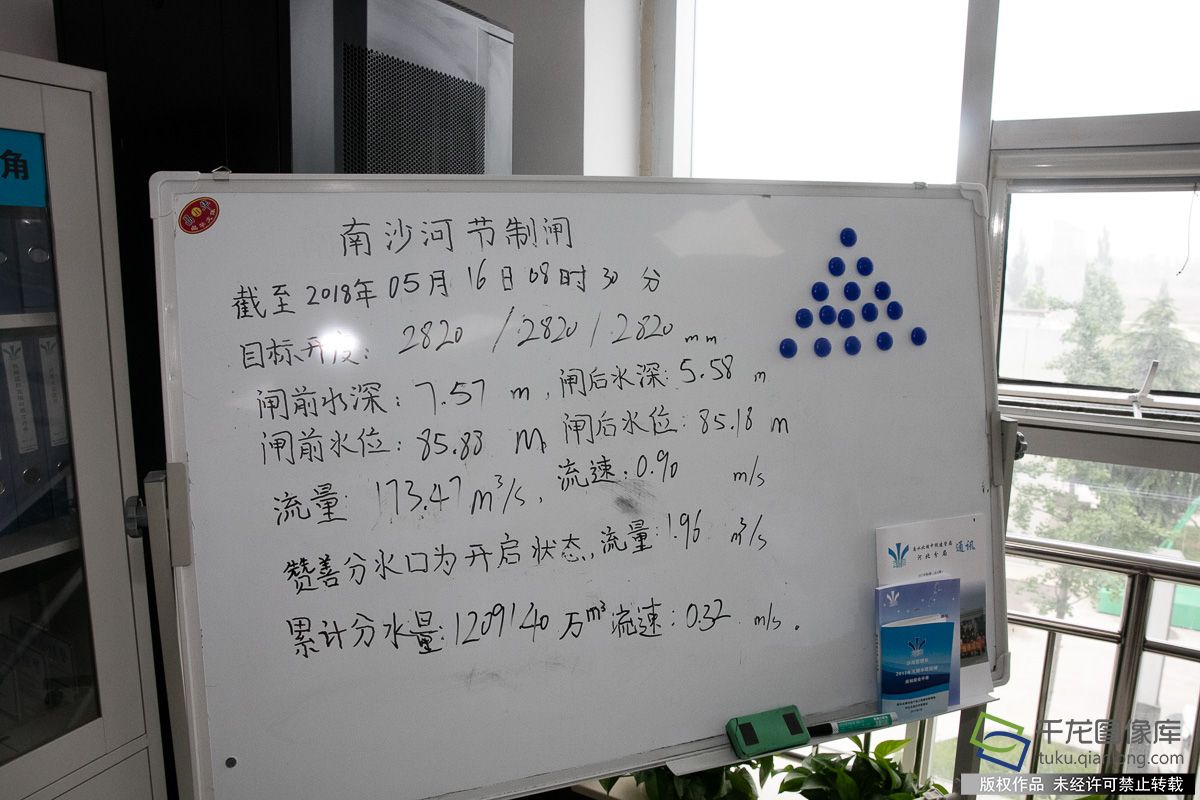 角
南沙河节制闸
截至2018年05月16日08时30分
目标开度: 2820 / 2820 / 2820 mm
闸前水深: 7.57 m, 闸后水深: 5.58 m
闸前水位: 85.83 m, 闸后水位: 85.18 m
流量: 173.47 m³/s, 流速: 0.90 m/s
赞善分水口为开启状态, 流量: 1.96 m³/s
累计分水量: 1209.40万m³ 流速: 0.32 m/s.
河北分局 通讯
千龙图像库
tuku.qianlong.com
版权作品 未经许可禁止转载